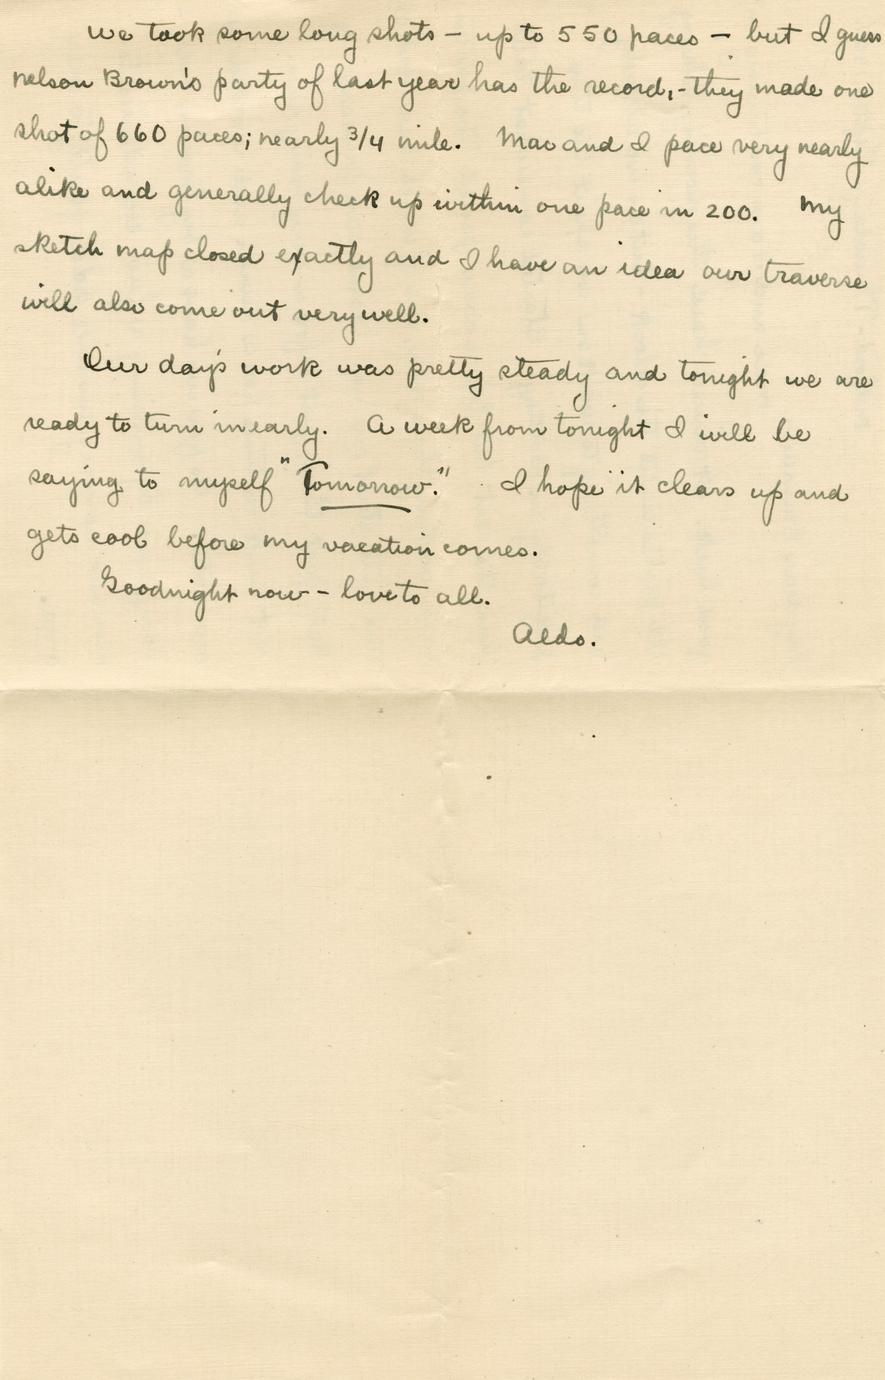 We took some long shots – up to 550 paces – but I guess
Nelson Brown's party of last year has the record,- they made one
shot of 660 paces; nearly 3/4 mile. Mac and I pace very nearly
alike and generally check up within one pace in 200. My
sketch map closed exactly and I have an idea our traverse
will also come out very well.
Our day's work was pretty steady and tonight we are
ready to turn in early. A week from tonight I will be
saying to myself "Tomorrow." I hope it clears up and
gets cool before my vacation comes.
Goodnight now – love to all.
Aldo.